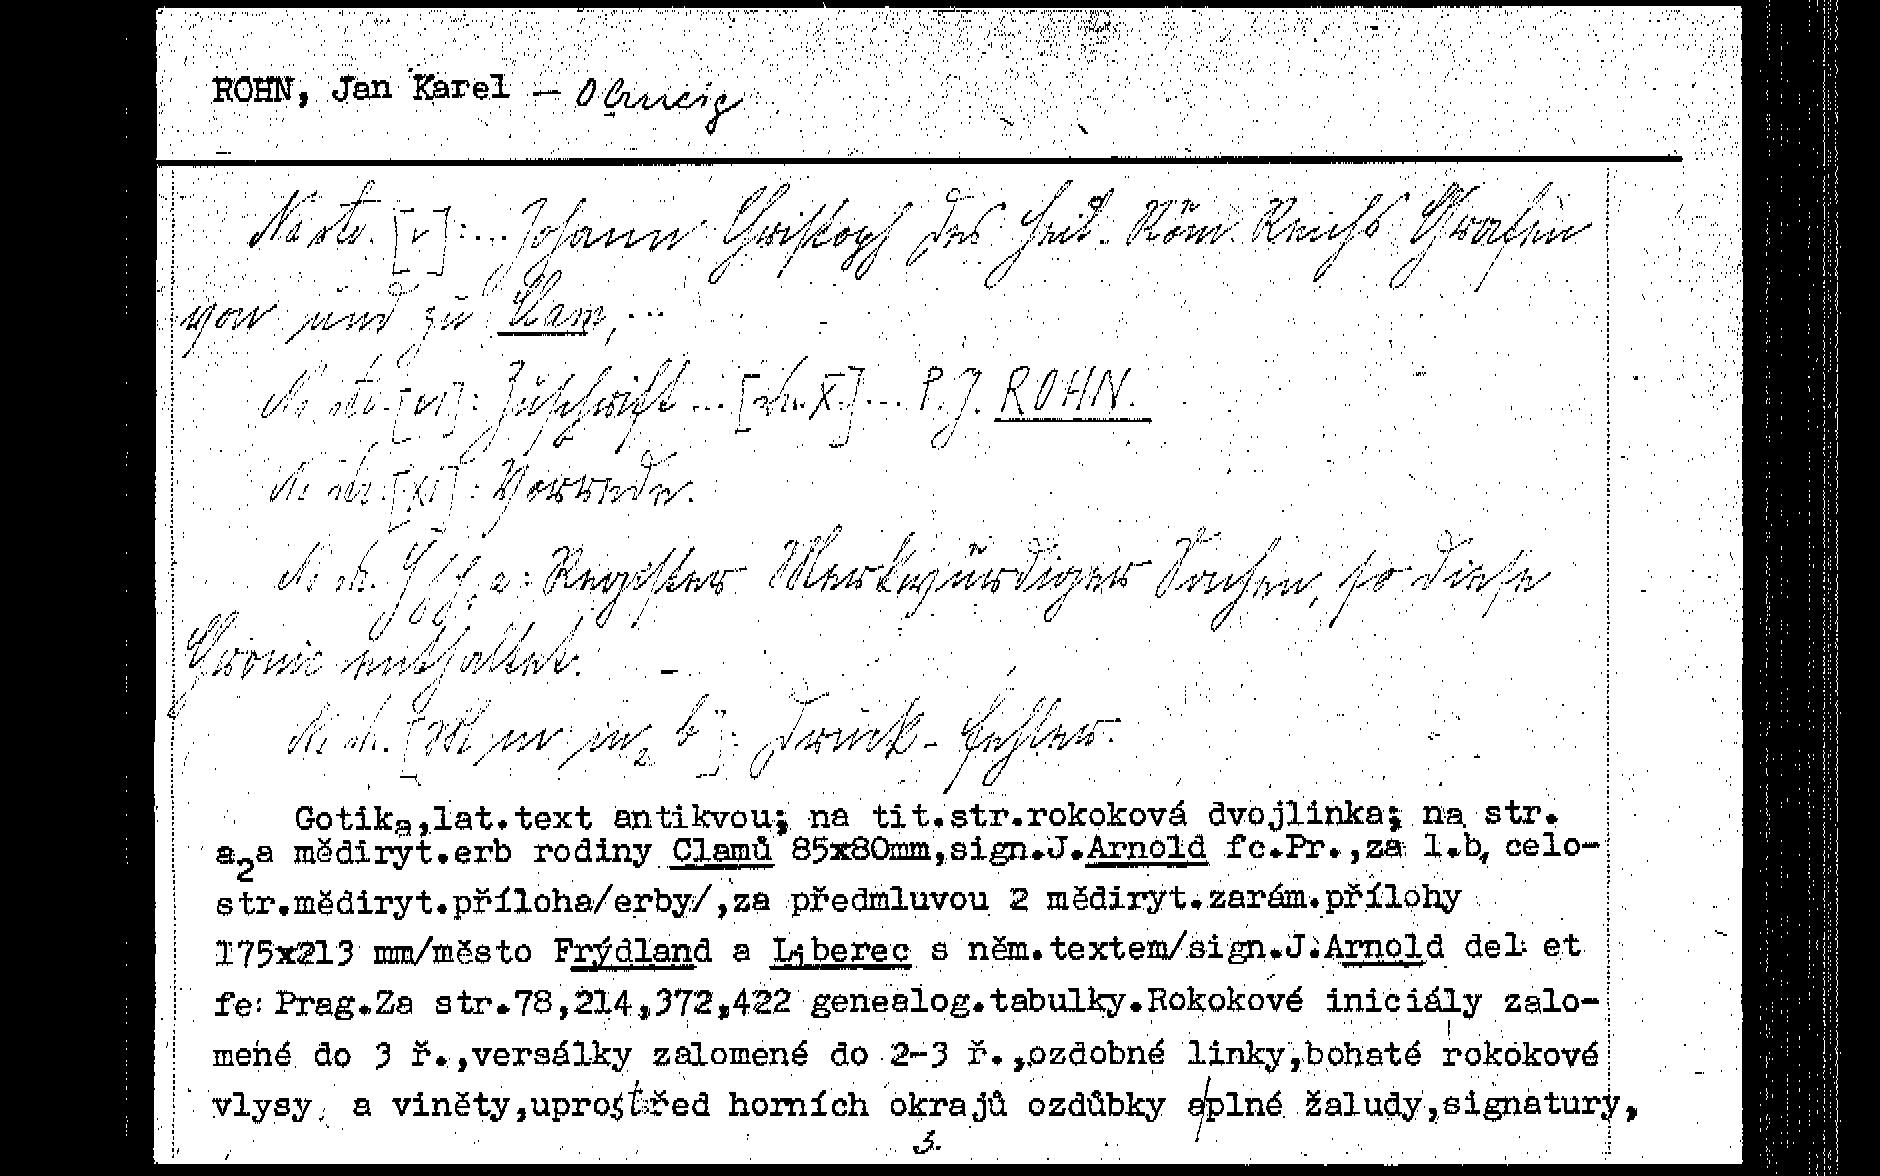 ROHN, Jan Karel — Chronic
Na str. [v]: ... Johann Christoph des Heil. Röm. Reichs Grafen
von und zu Clam, ...
Na str. [VI]: Zuschrift ... [str. X] ... P. J. ROHN.
Na str. [XI]: Vorrede.
Na str. 2 a: Register Merkwürdiger Sachen, so diese
Cronic enthaltet.
Na str. [m2 b]: Druck-Fehler.
Gotika,lat.text antikvou; na tit.str.rokoková dvojlinka; na str.
a2a mědiryt.erb rodiny Clamů 85x80mm,sign.J.Arnold fc.Pr.,za l.b, celo-
str.mědiryt.příloha/erby/,za předmluvou 2 mědiryt.zarám.přílohy
175x213 mm/město Frýdland a Liberec s něm.textem/sign.J.Arnold del: et
fe: Prag.Za str.78,214,372,422 genealog.tabulky.Rokokové iniciály zalo-
mené do 3 ř.,versálky zalomené do 2-3 ř.,ozdobné linky,bohaté rokokové
vlysy, a viněty,uprostřed horních okrajů ozdůbky a plné žaludy,signatury,
3.